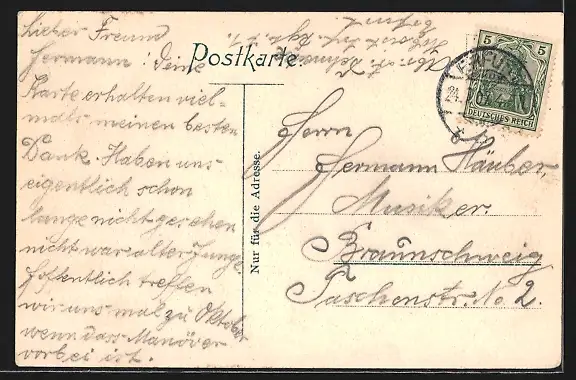 Lieber Freund
Hermann! Deine
Karte erhalten viel-
mals meinen besten
Dank. Haben uns
eigentlich schon
lange nicht gesehen
nicht war alter Junge
Hoffentlich treffen
wir uns mal zu Oktober
wenn dass Manöver
vorbei ist.
Postkarte.
Nur für die Adresse.
5 5
DEUTSCHES REICH
Herrn
Hermann Häuber,
Musiker.
Braunschweig
Taschenstr. No 2.